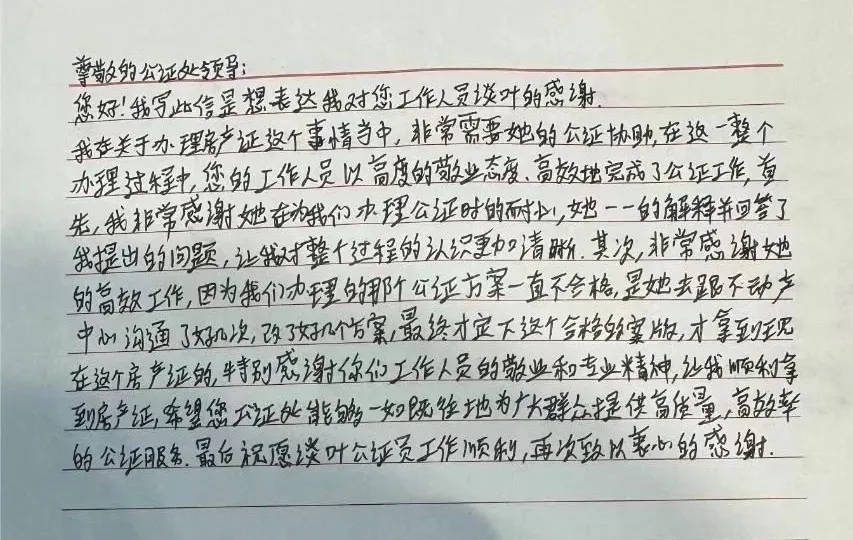 尊敬的公证处领导：
您好！我写此信是想表达我对您工作人员谈叶的感谢.
我在关于办理房产证这个事情当中，非常需要她的公证协助，在这一整个
办理过程中，您的工作人员以高度的敬业态度、高效地完成了公证工作，首
先，我非常感谢她在为我们办理公证时的耐心，她一一的解释并回答了
我提出的问题，让我对整个过程的认识更加清晰．其次，非常感谢她
的高效工作，因为我们办理的那个公证方案一直不合格，是她去跟不动产
中心沟通了好几次，改了好几个方案，最终才定下这个合格的案版，才拿到现
在这个房产证的，特别感谢你们工作人员的敬业和专业精神，让我顺利拿
到房产证，希望您公证处能够一如既往地为广大群众提供高质量，高效率
的公证服务．最后祝愿谈叶公证员工作顺利，再次致以衷心的感谢．